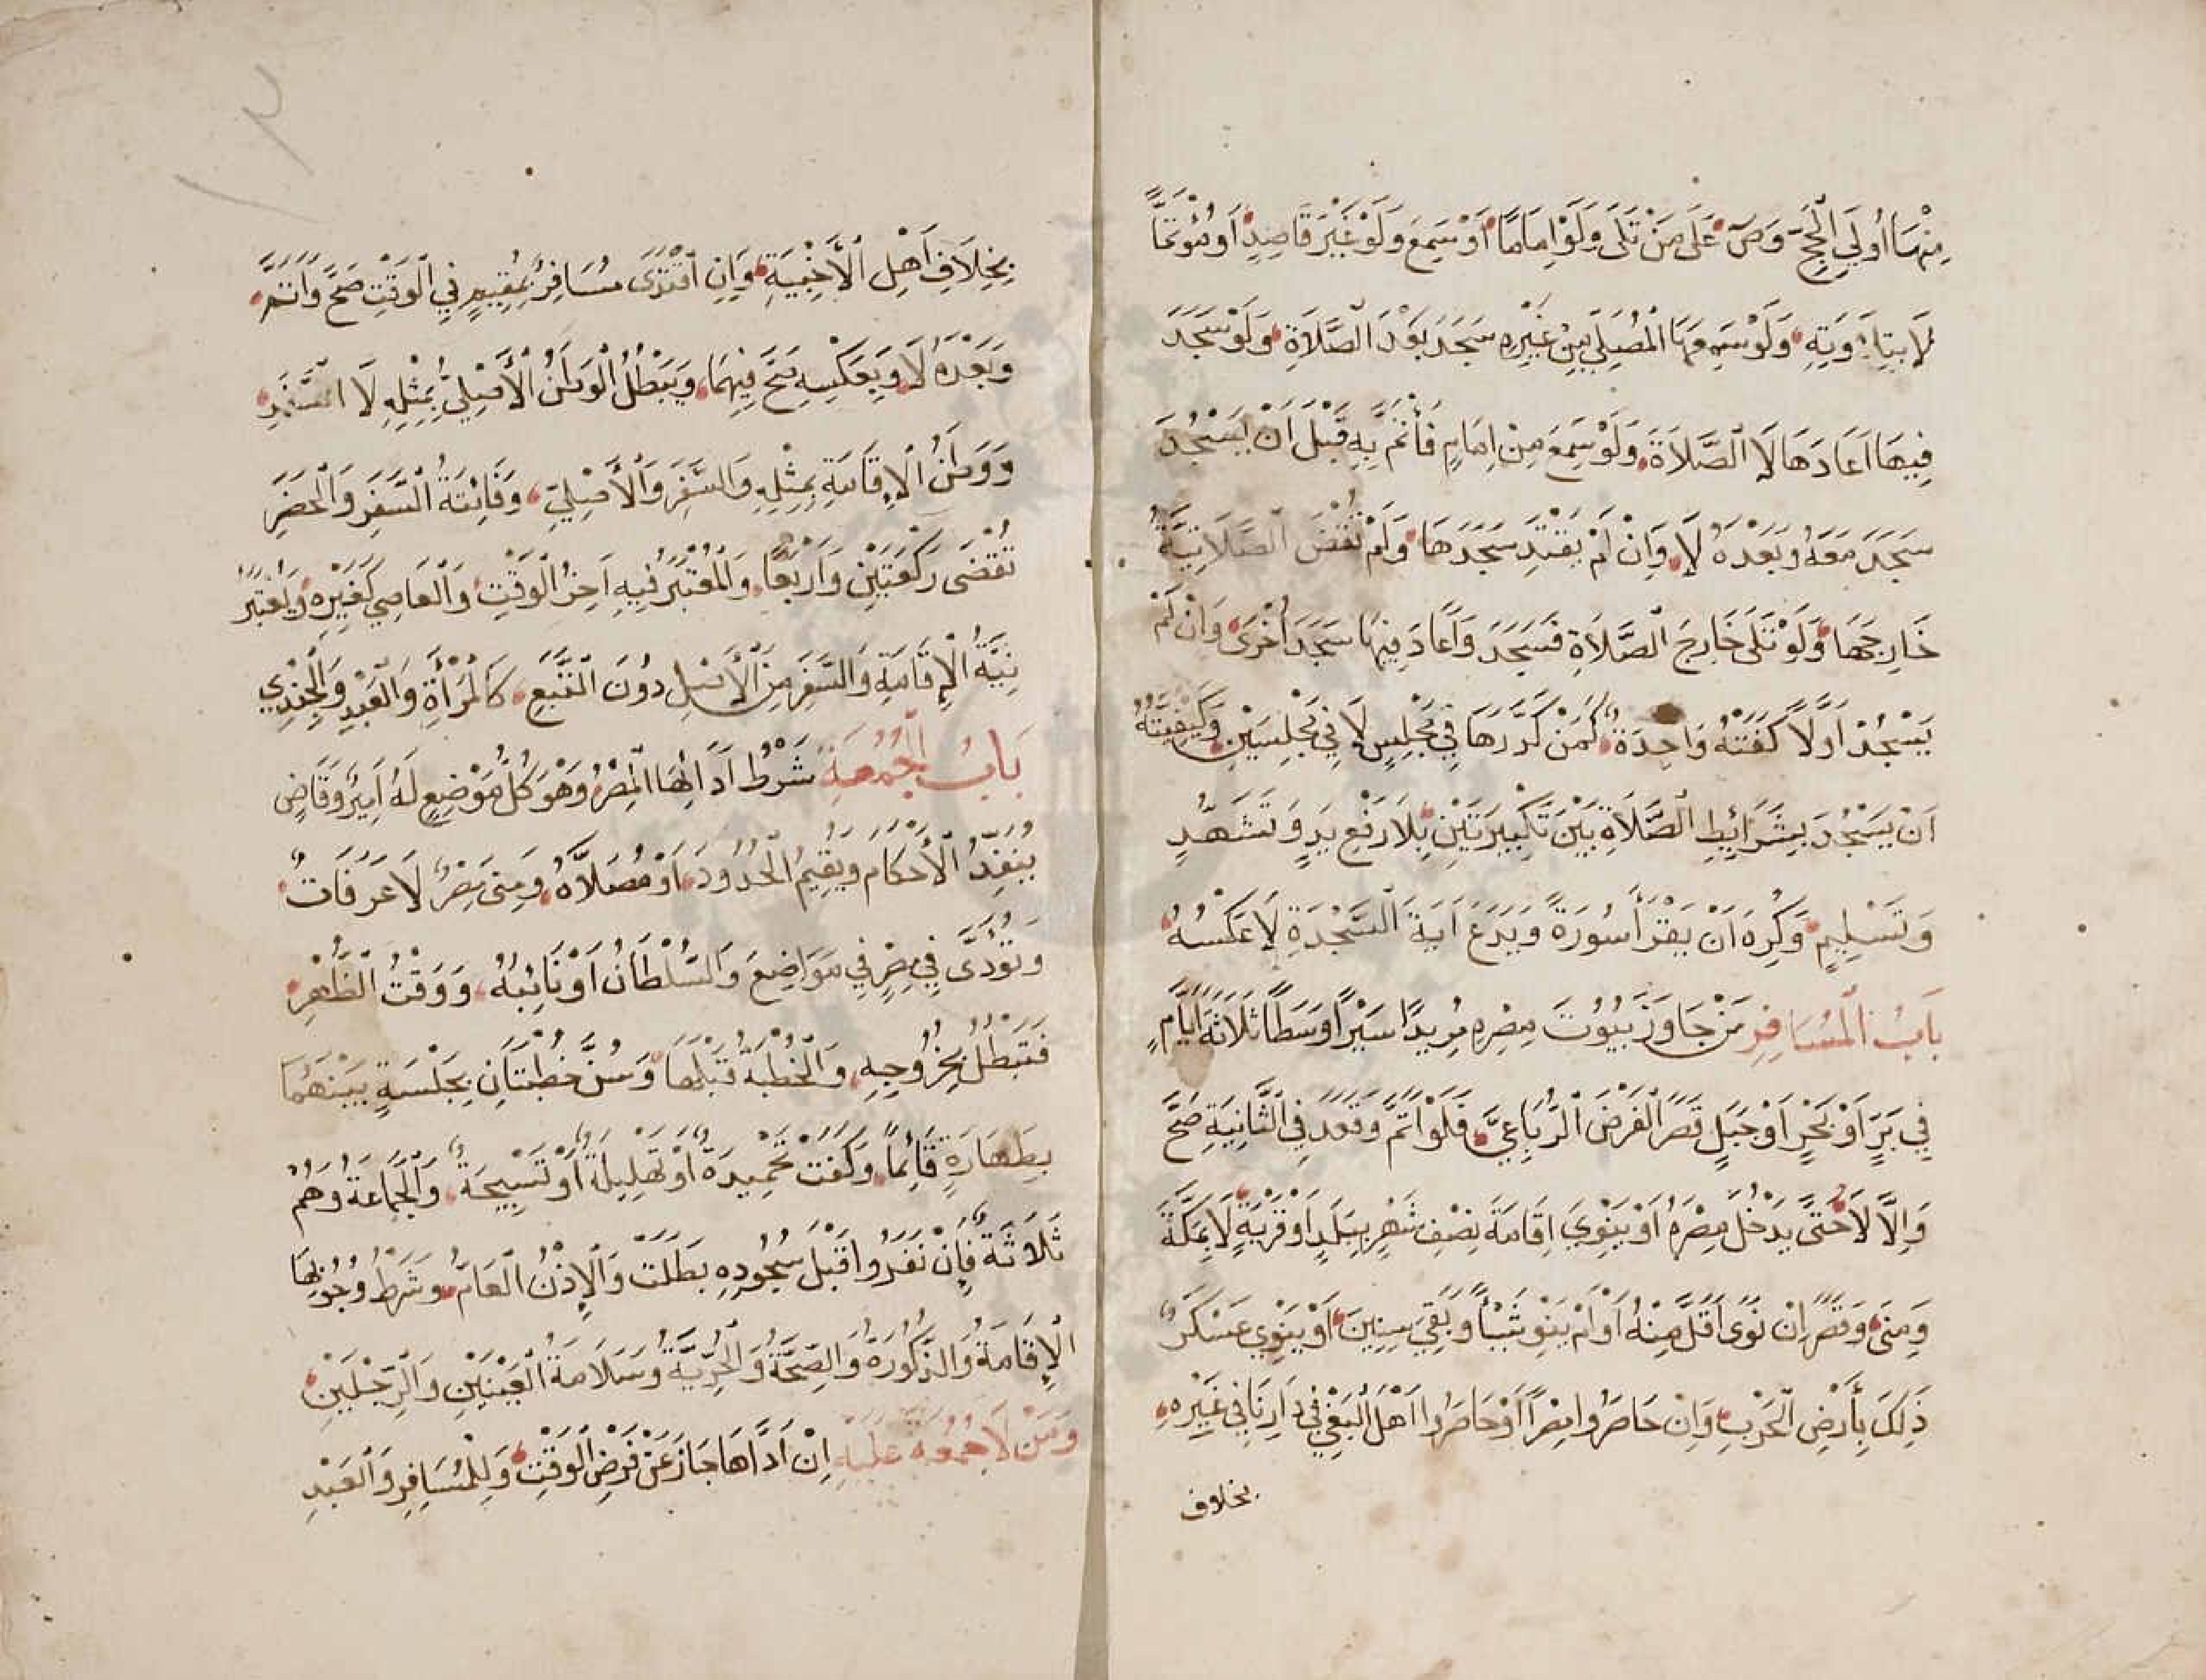 مِنْهَا أُولَى الْحَجِّ وَصَ عَلَى مَنْ تَلَى وَلَوْ إِمَامًا أَوْ سَمِعَ وَلَوْ غَيْرَ قَاصِدٍ أَوْ مُؤْتَمًّا
لَا بِتِلَاوَتِهِ وَلَوْ سَمِعَهَا الْمُصَلِّي مِنْ غَيْرِهِ سَجَدَ بَعْدَ الصَّلَاةِ وَلَوْ سَجَدَ
فِيهَا أَعَادَهَا لَا الصَّلَاةَ وَلَوْ سَمِعَ مِنْ إِمَامٍ فَأْتَمَّ بِهِ قَبْلَ أَنْ يَسْجُدَ
سَجَدَ مَعَهُ وَبَعْدَهُ لَا وَإِنْ لَمْ يَقْتَدِ سَجَدَهَا وَلَمْ تُقْضَ الصَّلَاتِيَّةُ
خَارِجَهَا وَلَوْ تَلَى خَارِجَ الصَّلَاةِ فَسَجَدَ وَأَعَادَ فِيهَا سَجَدَ أُخْرَى وَإِنْ لَمْ
يَسْجُدْ أَوَّلًا كَفَتْهُ وَاحِدَةٌ كَمَنْ كَرَّرَهَا فِي مَجْلِسٍ لَا فِي مَجْلِسَيْنِ وَكَيْفِيَّتُهُ
أَنْ يَسْجُدَ بِشَرَائِطِ الصَّلَاةِ بَيْنَ تَكْبِيرَتَيْنِ بِلَا رَفْعِ يَدٍ وَتَشَهُّدٍ
وَتَسْلِيمٍ وَكُرِهَ أَنْ يَقْرَأَ سُورَةً وَيَدَعَ آيَةَ السَّجْدَةِ لَا عَكْسُهُ
بَابُ الْمُسَافِرِ مَنْ جَاوَزَ بُيُوتَ مِصْرِهِ مُرِيدًا سَيْرًا وَسَطًا ثَلَاثَةَ أَيَّامٍ
فِي بَرٍّ أَوْ بَحْرٍ أَوْ جَبَلٍ قَصَرَ الْفَرْضَ الرُّبَاعِيَّ فَلَوْ أَتَمَّ وَقَعَدَ فِي الثَّانِيَةِ صَحَّ
وَإِلَّا لَا حَتَّى يَدْخُلَ مِصْرَهُ أَوْ يَنْوِيَ إِقَامَةَ نِصْفِ شَهْرٍ بِبَلَدٍ أَوْ قَرْيَةٍ لَا بِمَكَّةَ
وَمِنَى وَقَصَرَ إِنْ نَوَى أَقَلَّ مِنْهُ أَوْ لَمْ يَنْوِ شَيْئًا وَبَقِيَ سِنِينَ أَوْ يَنْوِي عَسْكَرٌ
ذَلِكَ بِأَرْضِ الْحَرْبِ وَإِنْ حَاصَرُوا مِصْرًا أَوْ حَاصَرُوا أَهْلَ الْبَغْيِ فِي دَارِنَا فِي غَيْرِهِ
بخلاف
بِخِلَافِ أَهْلِ الْأَخْبِيَةِ وَإِنِ اقْتَدَى مُسَافِرٌ بِمُقِيمٍ فِي الْوَقْتِ صَحَّ وَأَتَمَّ
وَبَعْدَهُ لَا وَبِعَكْسِهِ صَحَّ فِيهِمَا وَيَبْطُلُ الْوَطَنُ الْأَصْلِيُّ بِمِثْلِهِ لَا السَّفَرِ
وَوَطَنُ الْإِقَامَةِ بِمِثْلِهِ وَالسَّفَرِ وَالْأَصْلِيِّ وَفَائِتَةُ السَّفَرِ وَالْحَضَرِ
تُقْضَى رَكْعَتَيْنِ وَأَرْبَعًا وَالْمُعْتَبَرُ فِيهِ آخِرُ الْوَقْتِ وَالْعَاصِي كَغَيْرِهِ وَيُعْتَبَرُ
نِيَّةُ الْإِقَامَةِ وَالسَّفَرِ مِنَ الْأَصْلِ دُونَ التَّبَعِ كَالْمَرْأَةِ وَالْعَبْدِ وَالْجُنْدِيِّ
بَابُ الْجُمُعَةِ شَرْطُ أَدَائِهَا الْمِصْرُ وَهْوَ كُلُّ مَوْضِعٍ لَهُ أَمِيرٌ وَقَاضٍ
يُنَفِّذُ الْأَحْكَامَ وَيُقِيمُ الْحُدُودَ أَوْ مُصَلَّاهُ وَمِنَى مِصْرٌ لَا عَرَفَاتٌ
وَتُؤَدَّى فِي مِصْرٍ فِي مَوَاضِعَ وَالسُّلْطَانُ أَوْ نَائِبُهُ وَوَقْتُ الظُّهْرِ
فَتَبْطُلُ بِخُرُوجِهِ وَالْخُطْبَةُ قَبْلَهَا وَسُنَّ خُطْبَتَانِ بِجَلْسَةٍ بَيْنَهُمَا
بِطَهَارَةٍ قَائِمًا وَكَفَتْ تَحْمِيدَةٌ أَوْ تَهْلِيلَةٌ أَوْ تَسْبِيحَةٌ وَالْجَمَاعَةُ وَهُمْ
ثَلَاثَةٌ فَإِنْ نَفَرُوا قَبْلَ سُجُودِهِ بَطَلَتْ وَالْإِذْنُ الْعَامُّ وَشَرْطُ وُجُوبِهَا
الْإِقَامَةُ وَالذُّكُورَةُ وَالصِّحَّةُ وَالْحُرِّيَّةُ وَسَلَامَةُ الْعَيْنَيْنِ وَالرِّجْلَيْنِ
وَمَنْ لَا جُمُعَةَ عَلَيْهِ إِنْ أَدَّاهَا جَازَ عَنْ فَرْضِ الْوَقْتِ وَلِلْمُسَافِرِ وَالْعَبْدِ